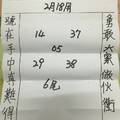 2月18号
勇敢六累做伙衝
14 37
05
29 38
6尾
號在手中真難得